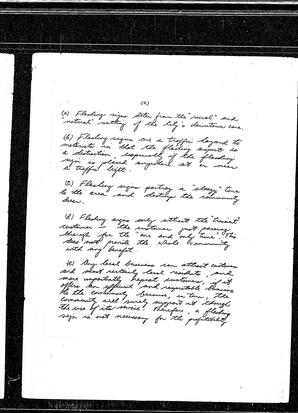 (2)
(a) Flashing signs deter from the "rural" and
"natural" setting of the city's downtown core.
(b) Flashing signs are a traffic hazard to
motorists in that the flashing aspect is
a distraction, especially if the flashing
sign is placed anywhere at or near
a traffic light.
(c) Flashing signs portray a "sleazy" tone
to the area and destroy the community
(d) Flashing signs only attract the "transit"
customer — the customer just passing
through for the one and only time. This
does not provide the whole community
with any benefit.
(e) Any local business can attract visitors
and most certainly local residents, and
more importantly repeat customers, if it
offers an efficient and respectable business
to the community because, in turn, the
community will surely support it through
the use of its service. Therefore, a flashing
sign is not necessary for the profitability